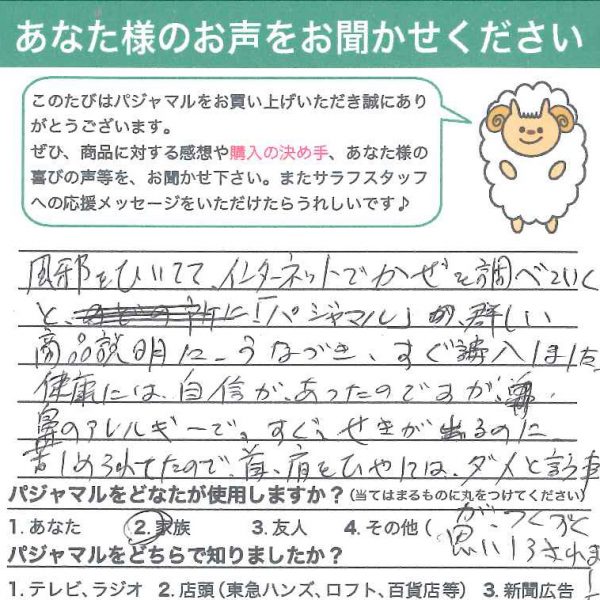 あなた様のお声をお聞かせください
このたびはパジャマルをお買い上げいただき誠にあり
がとうございます。
ぜひ、商品に対する感想や購入の決め手、あなた様の
喜びの声等を、お聞かせ下さい。またサラフスタッフ
への応援メッセージをいただけたらうれしいです♪
風邪をひいてて、インターネットでかぜを調べていく
と、「パジャマル」が、詳しい
商品説明に、うなづき、すぐ購入しました
健康には、自信が、あったのですが、
鼻のアレルギーで、すぐ、せきが出るのに
苦しめられてたので、首、肩をひやには、ダメと言う事
が、つくづく
思いしらされま
パジャマルをどなたが使用しますか?(当てはまるものに丸をつけてください)
1. あなた 2. 家族 3. 友人 4. その他(
パジャマルをどちらで知りましたか?
1. テレビ、ラジオ 2. 店頭(東急ハンズ、ロフト、百貨店等) 3. 新聞広告